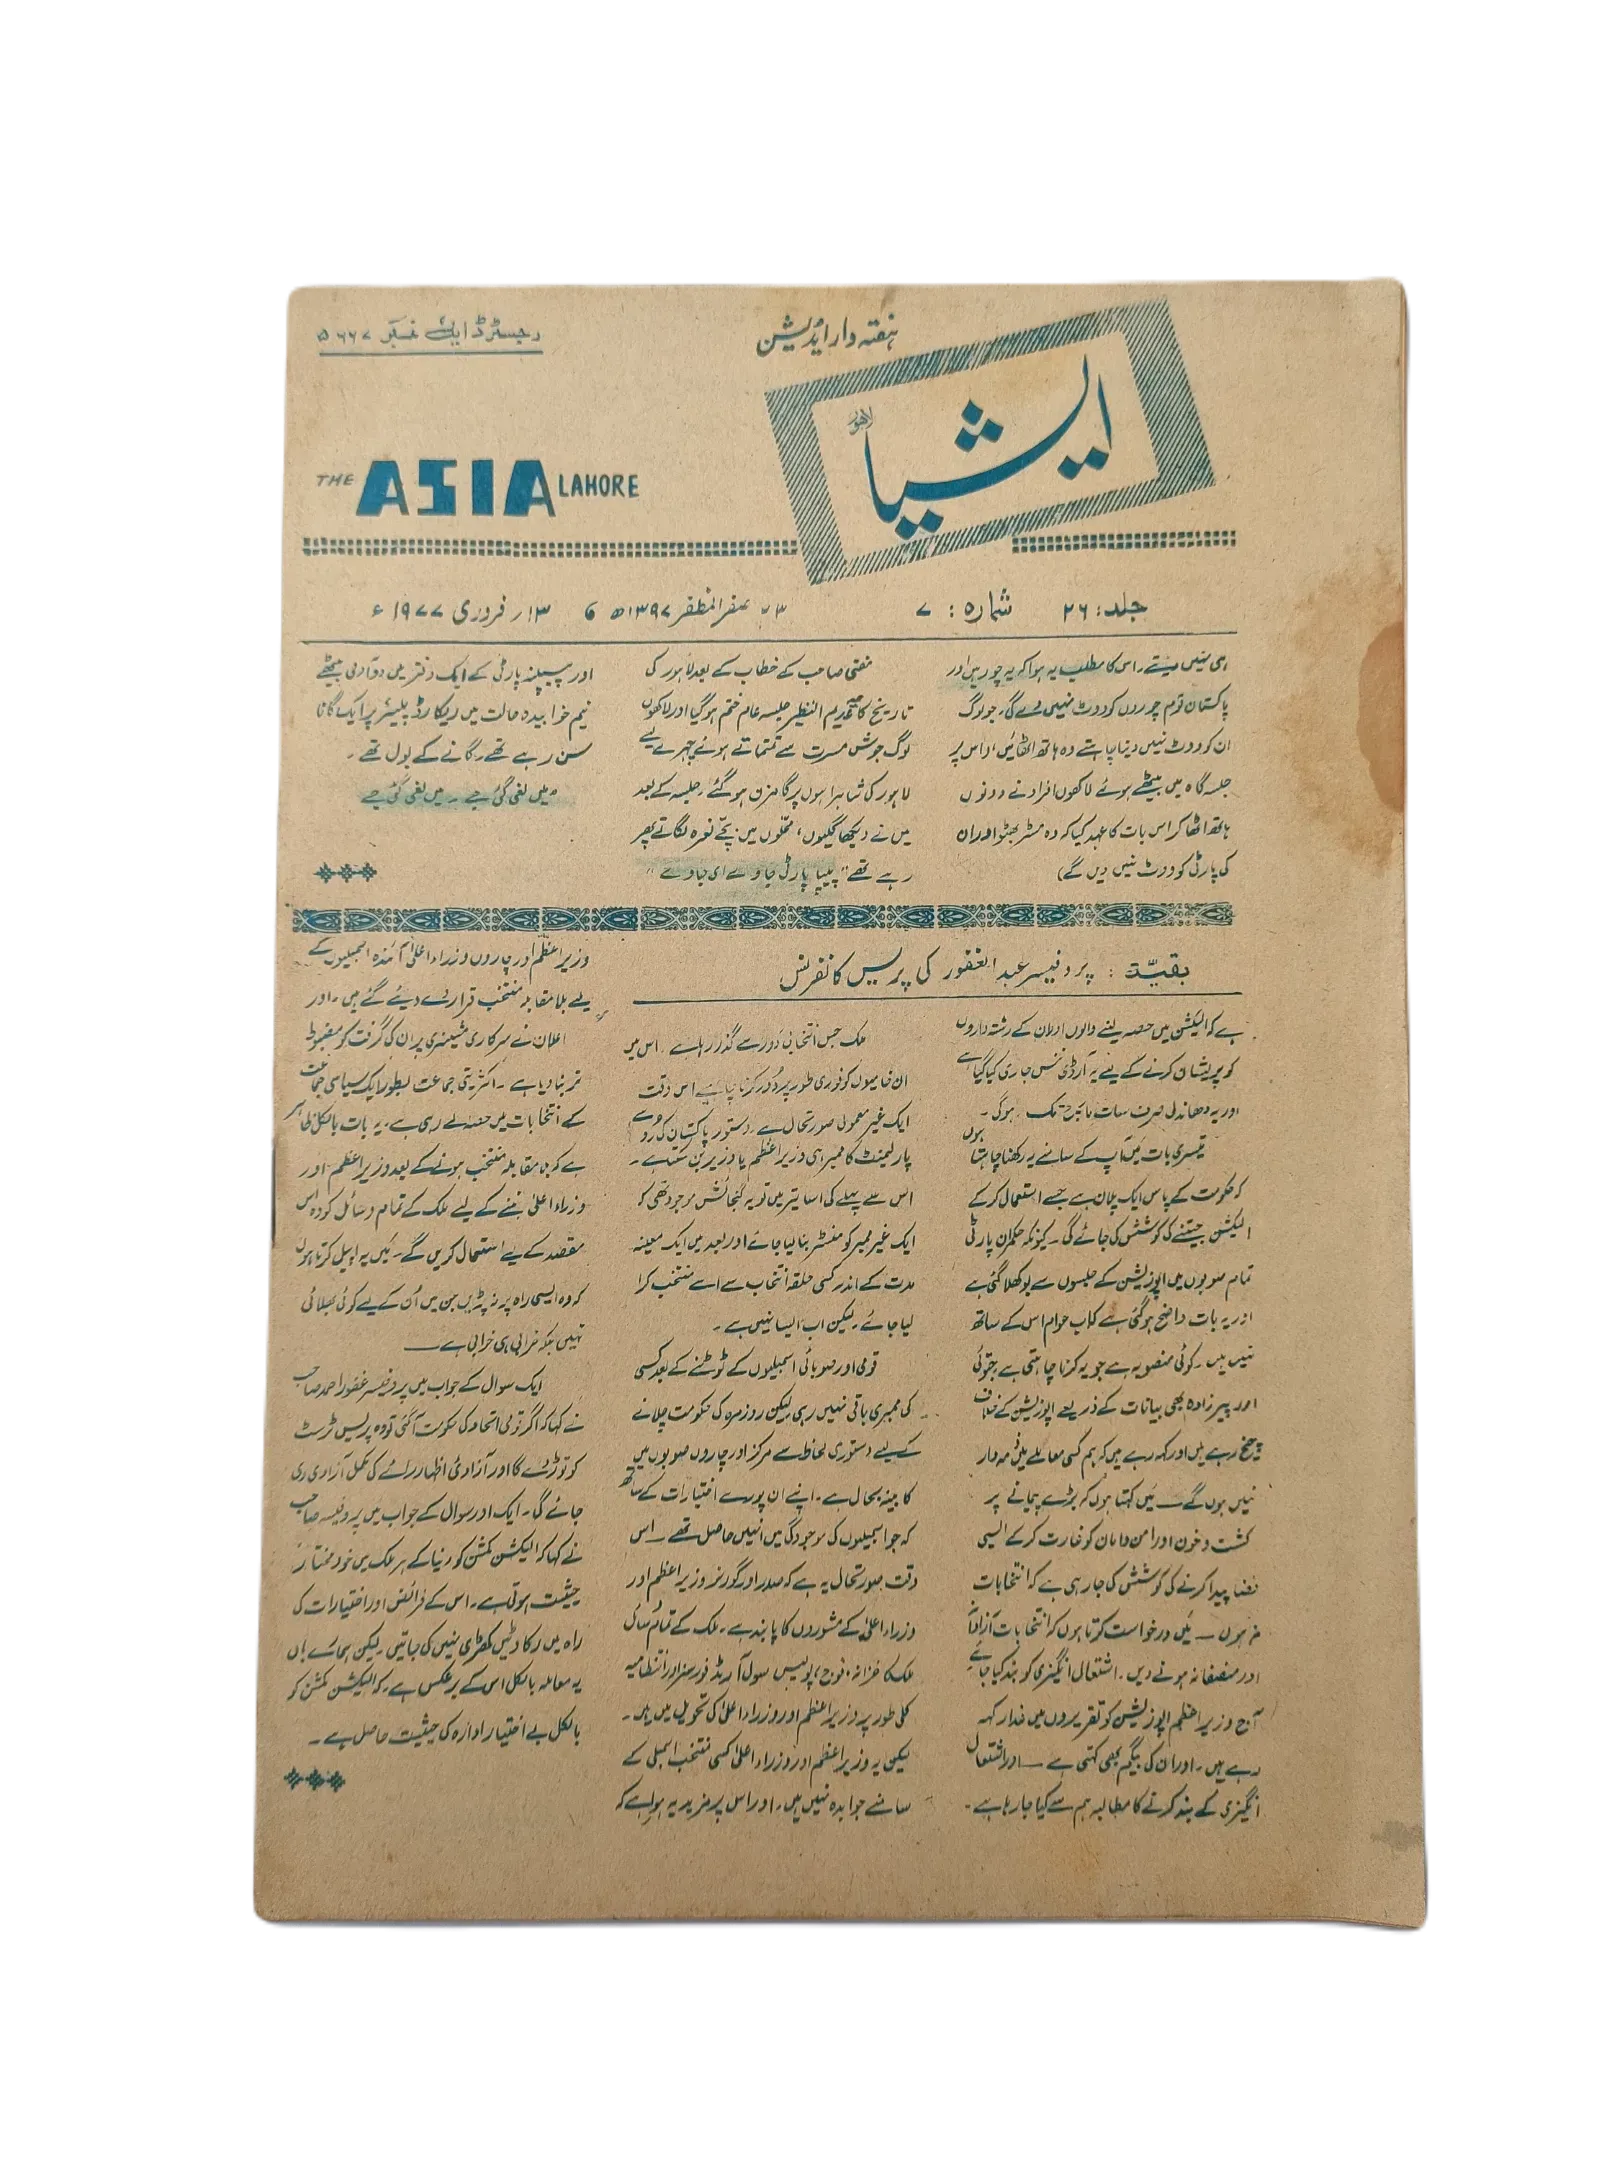 رجسٹرڈ ایل نمبر ۵۶۶۷
ہفتہ وار ایڈیشن
ایشیا
لاہور
THE ASIA LAHORE
جلد: ۲۶ شماره: ۷ ۲۳ صفر المظفر ۱۳۹۷ھ ۱۳ر فروری ۱۹۷۷ء
ہی نہیں دیتے۔ اس کا مطلب یہ ہوا کہ یہ چور ہیں اور
پاکستانی قوم چوروں کو ووٹ نہیں دے گی۔ جو لوگ
ان کو ووٹ نہیں دینا چاہتے وہ ہاتھ اٹھائیں، (اس پر
جلسہ گاہ میں بیٹھے ہوئے لاکھوں افراد نے دونوں
ہاتھ اٹھا کر اس بات کا عہد کیا کہ وہ مسٹر بھٹو اور ان
کی پارٹی کو ووٹ نہیں دیں گے)
مفتی صاحب کے خطاب کے بعد لاہور کی
تاریخ کا عدیم النظیر جلسہ عام ختم ہو گیا اور لاکھوں
لوگ جوش مسرت سے تمتماتے ہوئے چہرے لیے
لاہور کی شاہراہوں پر گامزن ہو گئے۔ جلسہ کے بعد
میں نے دیکھا گلیوں، محلوں میں بچے نعرہ لگاتے پھر
رہے تھے "پیپا پارٹی جاوے ای جاوے"
اور پیپلز پارٹی کے ایک دفتر میں دو آدمی بیٹھے
نیم خوابیدہ حالت میں ریکارڈ پلیئر پر ایک گانا
سن رہے تھے۔ گانے کے بول تھے۔
"میں لٹی گئی جے ۔ میں لٹی گئی جے
بقیہ: پروفیسر عبدالغفور کی پریس کانفرنس
ہے کہ الیکشن میں حصہ لینے والوں اور ان کے رشتہ داروں
کو پریشان کرنے کے لیے یہ آرڈی ننس جاری کیا گیا ہے
اور یہ دھاندلی صرف سات مارچ تک ہو گی۔
تیسری بات میں آپ کے سامنے یہ رکھنا چاہتا ہوں
کہ حکومت کے پاس ایک پلان ہے جسے استعمال کر کے
الیکشن جیتنے کی کوشش کی جائے گی۔ کیونکہ حکمران پارٹی
تمام صوبوں میں اپوزیشن کے جلسوں سے بوکھلا گئی ہے
اور یہ بات واضح ہو گئی ہے کہ اب عوام اس کے ساتھ
نہیں ہیں۔ کوئی منصوبہ ہے جو یہ کرنا چاہتی ہے جتوئی
اور پیرزادہ بھی بیانات کے ذریعے اپوزیشن کے خلاف
چیخ رہے ہیں اور کہہ رہے ہیں کہ ہم کسی معاملے میں ذمہ دار
نہیں ہوں گے — میں کہتا ہوں کہ بڑے پیمانے پر
کشت و خون اور امن و امان کو غارت کر کے ایسی
فضا پیدا کرنے کی کوشش کی جا رہی ہے کہ انتخابات
نہ ہوں — میں درخواست کرتا ہوں کہ انتخابات آزادانہ
اور منصفانہ ہونے دیں۔ اشتعال انگیزی کو بند کیا جائے
آج وزیر اعظم اپوزیشن کو تقریروں میں غدار کہہ
رہے ہیں۔ اور ان کی بیگم بھی کہتی ہے — اور اشتعال
انگیزی کے بند کرنے کا مطالبہ ہم سے کیا جا رہا ہے۔
ملک جس انتخابی دور سے گذر رہا ہے۔ اس میں
ان خامیوں کو فوری طور پر دور کرنا چاہیے اس وقت
ایک غیر معمولی صورتحال ہے۔ دستور پاکستان کی رو سے
پارلیمنٹ کا ممبر ہی وزیر اعظم یا وزیر بن سکتا ہے۔
اس سے پہلے کی اساتیر میں تو یہ گنجائش موجود تھی کہ
ایک غیر ممبر کو منسٹر بنا لیا جائے اور بعد میں ایک معینہ
مدت کے اندر کسی حلقہ انتخاب سے اسے منتخب کرا
لیا جائے۔ لیکن اب ایسا نہیں ہے۔
قومی اور صوبائی اسمبلیوں کے ٹوٹنے کے بعد کسی
کی ممبری باقی نہیں رہی لیکن روزمرہ کی حکومت چلانے
کے لیے دستوری لحاظ سے مرکز اور چاروں صوبوں میں
کابینہ بحال ہے۔ اپنے ان پورے اختیارات کے ساتھ
کہ جو اسمبلیوں کی موجودگی میں انہیں حاصل تھے — اس
وقت صورتحال یہ ہے کہ صدر اور گورنر وزیر اعظم اور
وزراء اعلیٰ کے مشوروں کا پابند ہے۔ ملک کے تمام وسائل
ملک کا خزانہ، فوج، پولیس سول آرمڈ فورسز اور انتظامیہ
کلی طور پر وزیر اعظم اور وزراء اعلیٰ کی تحویل میں ہیں۔
لیکن یہ وزیر اعظم اور وزراء اعلیٰ کسی منتخب اسمبلی کے
سامنے جوابدہ نہیں ہیں۔ اور اس پر مزید یہ ہوا ہے کہ
وزیر اعظم اور چاروں وزراء اعلیٰ آئندہ اسمبلیوں کے
لیے بلا مقابلہ منتخب قرار دے دیئے گئے ہیں۔ اور
اعلان نے سرکاری مشینری پر ان کی گرفت کو مضبوط
تر بنا دیا ہے۔ اکثریتی جماعت بطور ایک سیاسی جماعت
کے انتخابات میں حصہ لے رہی ہے۔ یہ بات بالکل ظاہر
ہے کہ بلا مقابلہ منتخب ہونے کے بعد وزیر اعظم اور
وزراء اعلیٰ بننے کے لیے ملک کے تمام وسائل کو وہ اس
مقصد کے لیے استعمال کریں گے۔ میں یہ اپیل کرتا ہوں
کہ وہ ایسی راہ پر نہ پڑیں جن میں اُن کے لیے کوئی بھلائی
نہیں بلکہ خرابی ہی خرابی ہے —
ایک سوال کے جواب میں پروفیسر غفور احمد صاحب
نے کہا کہ اگر قومی اتحاد کی حکومت آ گئی تو وہ پریس ٹرسٹ
کو توڑ دے گا اور آزادئ اظہار رائے کی مکمل آزادی دی
جائے گی۔ ایک اور سوال کے جواب میں پروفیسر صاحب
نے کہا کہ الیکشن کمشن کو دنیا کے ہر ملک میں خود مختار
حیثیت ہوتی ہے۔ اس کے فرائض اور اختیارات کی
راہ میں رکاوٹیں کھڑی نہیں کی جاتیں۔ لیکن ہمارے ہاں
یہ معاملہ بالکل اس کے برعکس ہے۔ کہ الیکشن کمشن کو
بالکل بے اختیار ادارہ کی حیثیت حاصل ہے۔